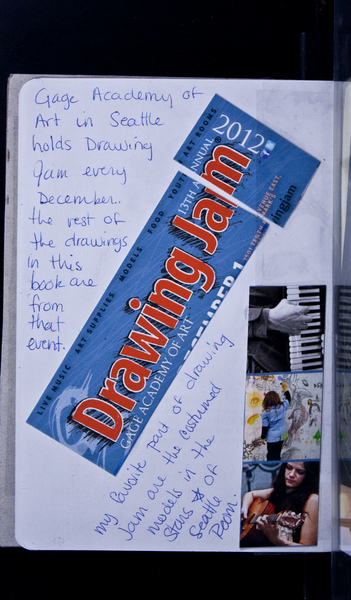 Gage Academy of
Art in Seattle
holds Drawing
Jam every
December.
the rest of
the drawings
in this
book are
from
that
event.
ART ROOMS
2012
13TH ANNUAL
LIVE MUSIC ART SUPPLIES MODELS FOOD YOUT
Drawing Jam
GAGE ACADEMY OF ART
my favorite part of drawing
Jam are the costumed
models in the
Stens of
Seattle
Room.